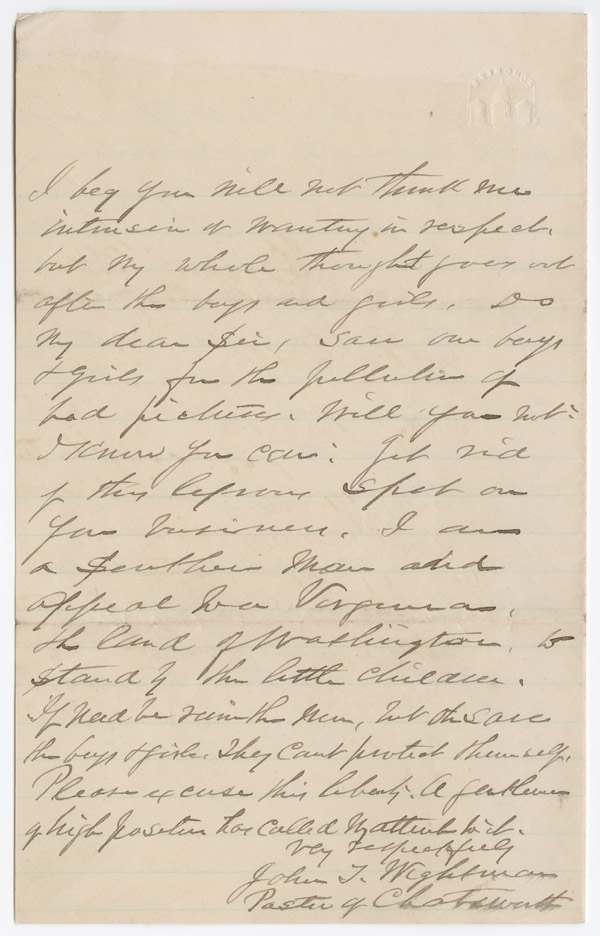 CONGRESS
I beg you will not think me
intrusive or wanting in respect.
but my whole thought goes out
after the boys and girls. Do
my dear Sir, save our boys
& girls fm the pollution of
bad pictures. Will you not:
I know you can: Get rid
of this leprous spot on
your business. I am
a Southern Man and
appeal to a Virginian,
the land of Washington, to
Stand by the little children.
If need be ruin the men, but oh save
the boys & girls. They cant protect themself.
Please excuse this liberty. A gentleman
of high position has called my attention to it.
Very respectfully
John T. Wightman
Pastor of Chatsworth